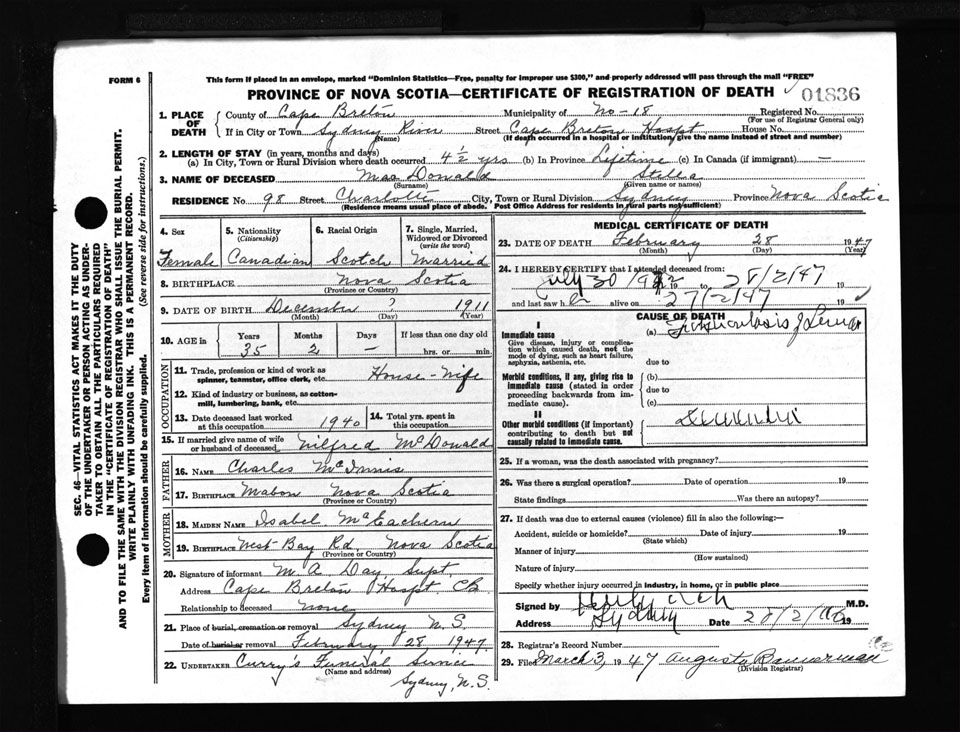 FORM 6
This form if placed in an envelope, marked "Dominion Statistics—Free, penalty for improper use $300," and properly addressed will pass through the mail "FREE"
PROVINCE OF NOVA SCOTIA—CERTIFICATE OF REGISTRATION OF DEATH
01836
1. PLACE OF DEATH
County of Cape Breton Municipality of No-18 Registered No.
(For use of Registrar General only)
If in City or Town Sydney River Street Cape Breton Hospt House No.
(Name) (If death occurred in a hospital or institution, give the name instead of street and number)
2. LENGTH OF STAY (in years, months and days)
(a) In City, Town or Rural Division where death occurred 4½ yrs (b) In Province Lifetime (c) In Canada (if immigrant) —
3. NAME OF DECEASED MacDonald Stella
(Surname) (Given name or names)
RESIDENCE No. 98 Street Charlotte City, Town or Rural Division Sydney Province Nova Scotia
(Residence means usual place of abode. Post Office Address for residents in rural parts not sufficient)
4. Sex
Female
5. Nationality (Citizenship)
Canadian
6. Racial Origin
Scotch
7. Single, Married, Widowed or Divorced (write the word)
Married
8. BIRTHPLACE Nova Scotia
(Province or Country)
9. DATE OF BIRTH December ? 1911
(Month) (Day) (Year)
10. AGE in
Years Months Days If less than one day old
35 2 — hrs. or min.
OCCUPATION
11. Trade, profession or kind of work as spinner, teamster, office clerk, etc. House-Wife
12. Kind of industry or business, as cotton-mill, lumbering, bank, etc.
13. Date deceased last worked at this occupation 1940
14. Total yrs. spent in this occupation
15. If married give name of wife or husband of deceased Wilfred McDonald
FATHER
16. NAME Charles McInnis
17. BIRTHPLACE Mabou Nova Scotia
(Province or Country)
MOTHER
18. MAIDEN NAME Isabel MacEachern
19. BIRTHPLACE West Bay Rd. Nova Scotia
(Province or Country)
20. Signature of informant M A Day Supt
Address Cape Breton Hospt CB
Relationship to deceased none
21. Place of burial, cremation or removal Sydney N.S.
Date of burial or removal February 28 1947
22. UNDERTAKER Curry's Funeral Service
(Name and address)
Sydney, N.S.
MEDICAL CERTIFICATE OF DEATH
23. DATE OF DEATH February 28 1947
(Month) (Day) (Year)
24. I HEREBY CERTIFY that I attended deceased from:
July 30/1942 19 to 28/2/47 19
and last saw h er alive on 27/2/47 19
CAUSE OF DEATH
I
Immediate cause
Give disease, injury or complication which caused death, not the mode of dying, such as heart failure, asphyxia, asthenia, etc.
(a)
due to
Morbid conditions, if any, giving rise to immediate cause (stated in order proceeding backwards from immediate cause).
(b)
due to
(c)
II
Other morbid conditions (if important) contributing to death but not causally related to immediate cause.
25. If a woman, was the death associated with pregnancy?
26. Was there a surgical operation? Date of operation 19
State findings Was there an autopsy?
27. If death was due to external causes (violence) fill in also the following:—
Accident, suicide or homicide? Date of injury 19
(State which)
Manner of injury
(How sustained)
Nature of injury
Specify whether injury occurred in industry, in home, or in public place
Signed by M.D.
Address Sydney Date 28/2/ 19
28. Registrar's Record Number
29. Filed March 3, 1947 Augusta Bannerman
(Division Registrar)
SEC. 46—VITAL STATISTICS ACT MAKES IT THE DUTY
OF THE UNDERTAKER OR PERSON ACTING AS UNDER-
TAKER TO OBTAIN ALL THE PARTICULARS REQUIRED
IN THE "CERTIFICATE OF REGISTRATION OF DEATH"
AND TO FILE THE SAME WITH THE DIVISION REGISTRAR WHO SHALL ISSUE THE BURIAL PERMIT.
WRITE PLAINLY WITH UNFADING INK. THIS IS A PERMANENT RECORD.
Every item of information should be carefully supplied. (See reverse side for instructions.)